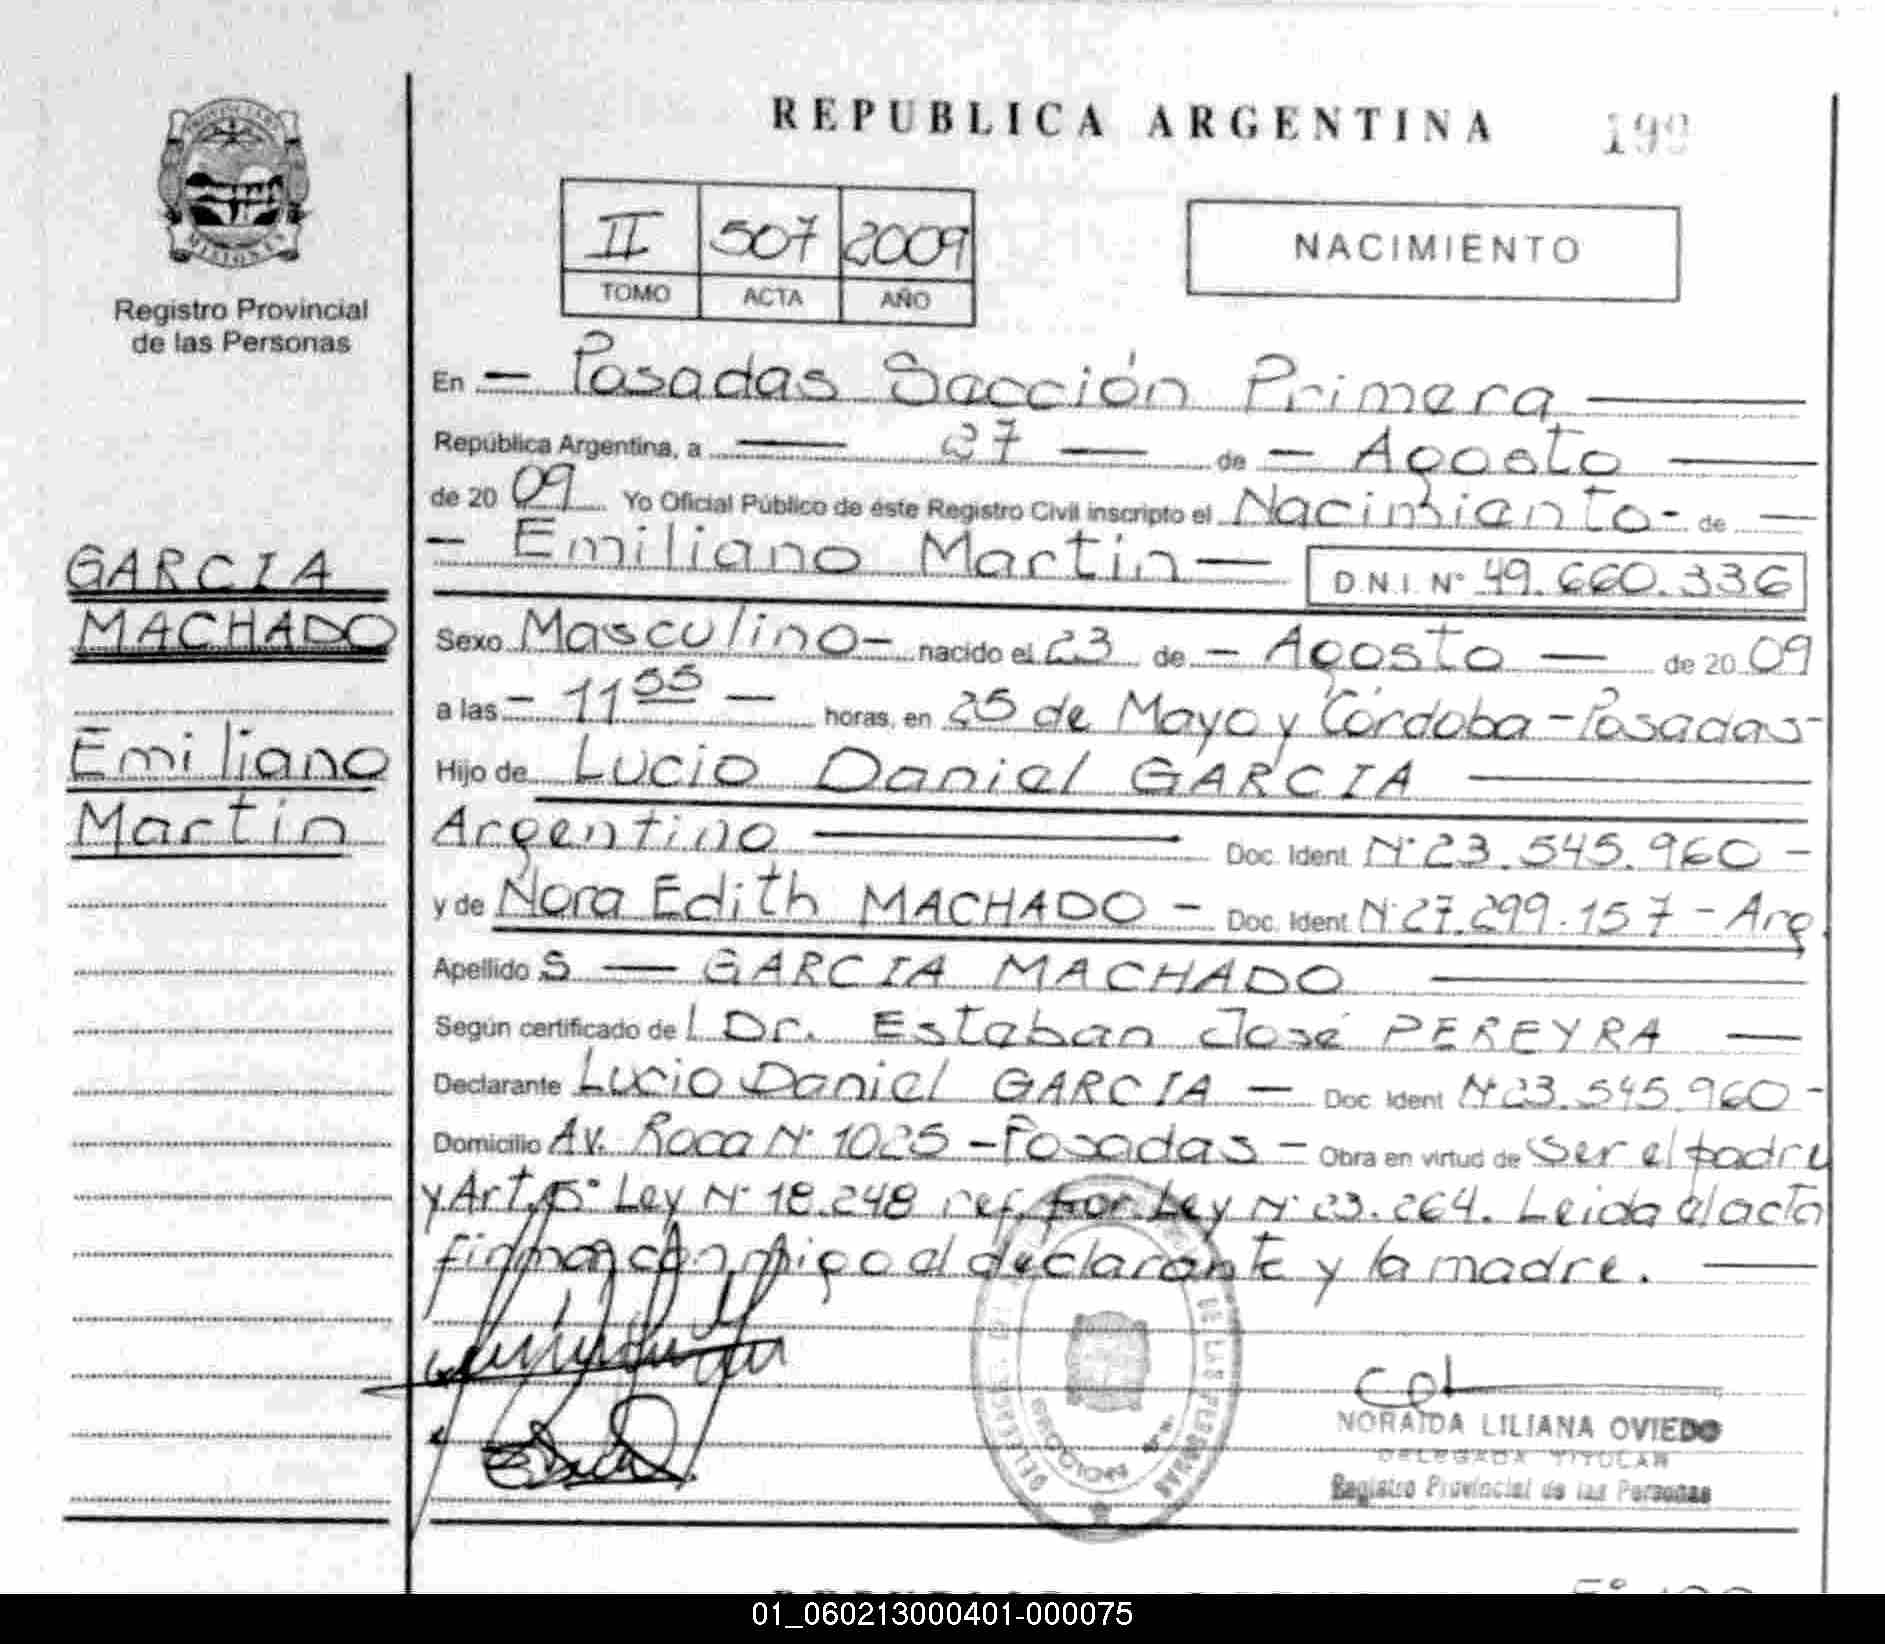 REPUBLICA ARGENTINA 199
II 507 2009
TOMO ACTA AÑO
NACIMIENTO
Registro Provincial
de las Personas
GARCIA
MACHADO
Emiliano
Martin
En - Posadas Sección Primera
República Argentina, a 27 de - Agosto
de 20 09 Yo Oficial Público de éste Registro Civil inscripto el Nacimiento - de
- Emiliano Martin - D.N.I. N° 49.660.336
Sexo Masculino - nacido el 23 de - Agosto - de 20 09
a las - 11 55 - horas, en 25 de Mayo y Córdoba - Posadas -
Hijo de Lucio Daniel GARCIA
Argentino Doc. Ident. N° 23.545.960 -
y de Nora Edith MACHADO - Doc. Ident. N° 27.299.157 - Arg.
Apellido S - GARCIA MACHADO
Según certificado de l Dr. Esteban José PEREYRA -
Declarante Lucio Daniel GARCIA - Doc. Ident N° 23.545.960 -
Domicilio Av. Roca N° 1025 - Posadas - Obra en virtud de Ser el padre
y Art. 5° Ley N° 18.248 ref. por Ley N° 23.264. Leida el acta
firman conmigo el declarante y la madre.
DE LAS PERSONAS
NORAIDA LILIANA OVIEDO
DELEGADA TITULAR
Registro Provincial de las Personas
01_060213000401-000075